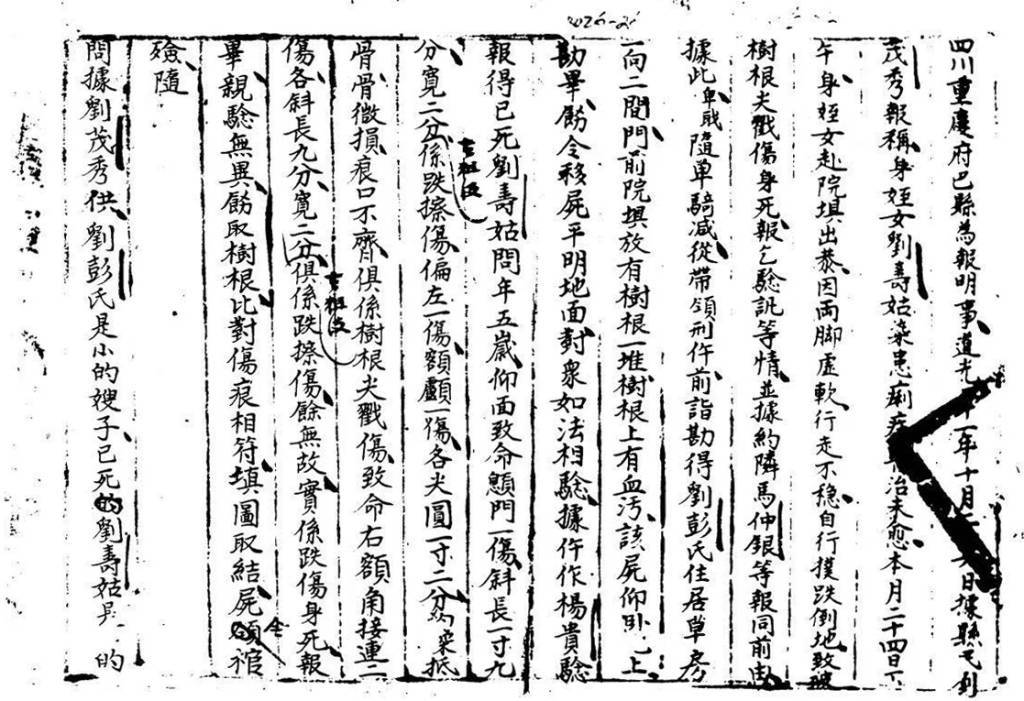 四川重慶府巴縣為報明事道光十一年十月二十六日據縣民劉
茂秀報稱身姪女劉壽姑染患痢疾治未愈本月二十四日下
午身姪女赴院垻出恭因両脚虛軟行走不穩自行撲跌倒地致被
樹根夫戳傷身死報乞驗訊等情並據約隣馬仲銀等報同前由
據此卑戝隨单騎減從帶領刑仵前詣勘得劉彭氏住居草房
一向二間門前院垻放有樹根一堆樹根上有血汚該屍仰卧地上
勘畢飭令移屍平明地面對衆如法相驗據仵作楊貴驗
報得已死劉壽姑問年五歲仰面致命顖門一傷斜長一寸九
分寬二分係跌擦傷偏左一傷額顱一傷各尖圓一寸二分約桼抵
骨骨微損痕口不齊俱係樹根夫戳傷致命右額角接連二
傷各斜長九分寬二分俱係跌擦傷餘無故實係跌傷身死報
畢親驗無異飭取樹根比對傷痕相符填圖取結屍棺
殮隨
問據劉茂秀供劉彭氏是小的嫂子已死的劉壽姑是的